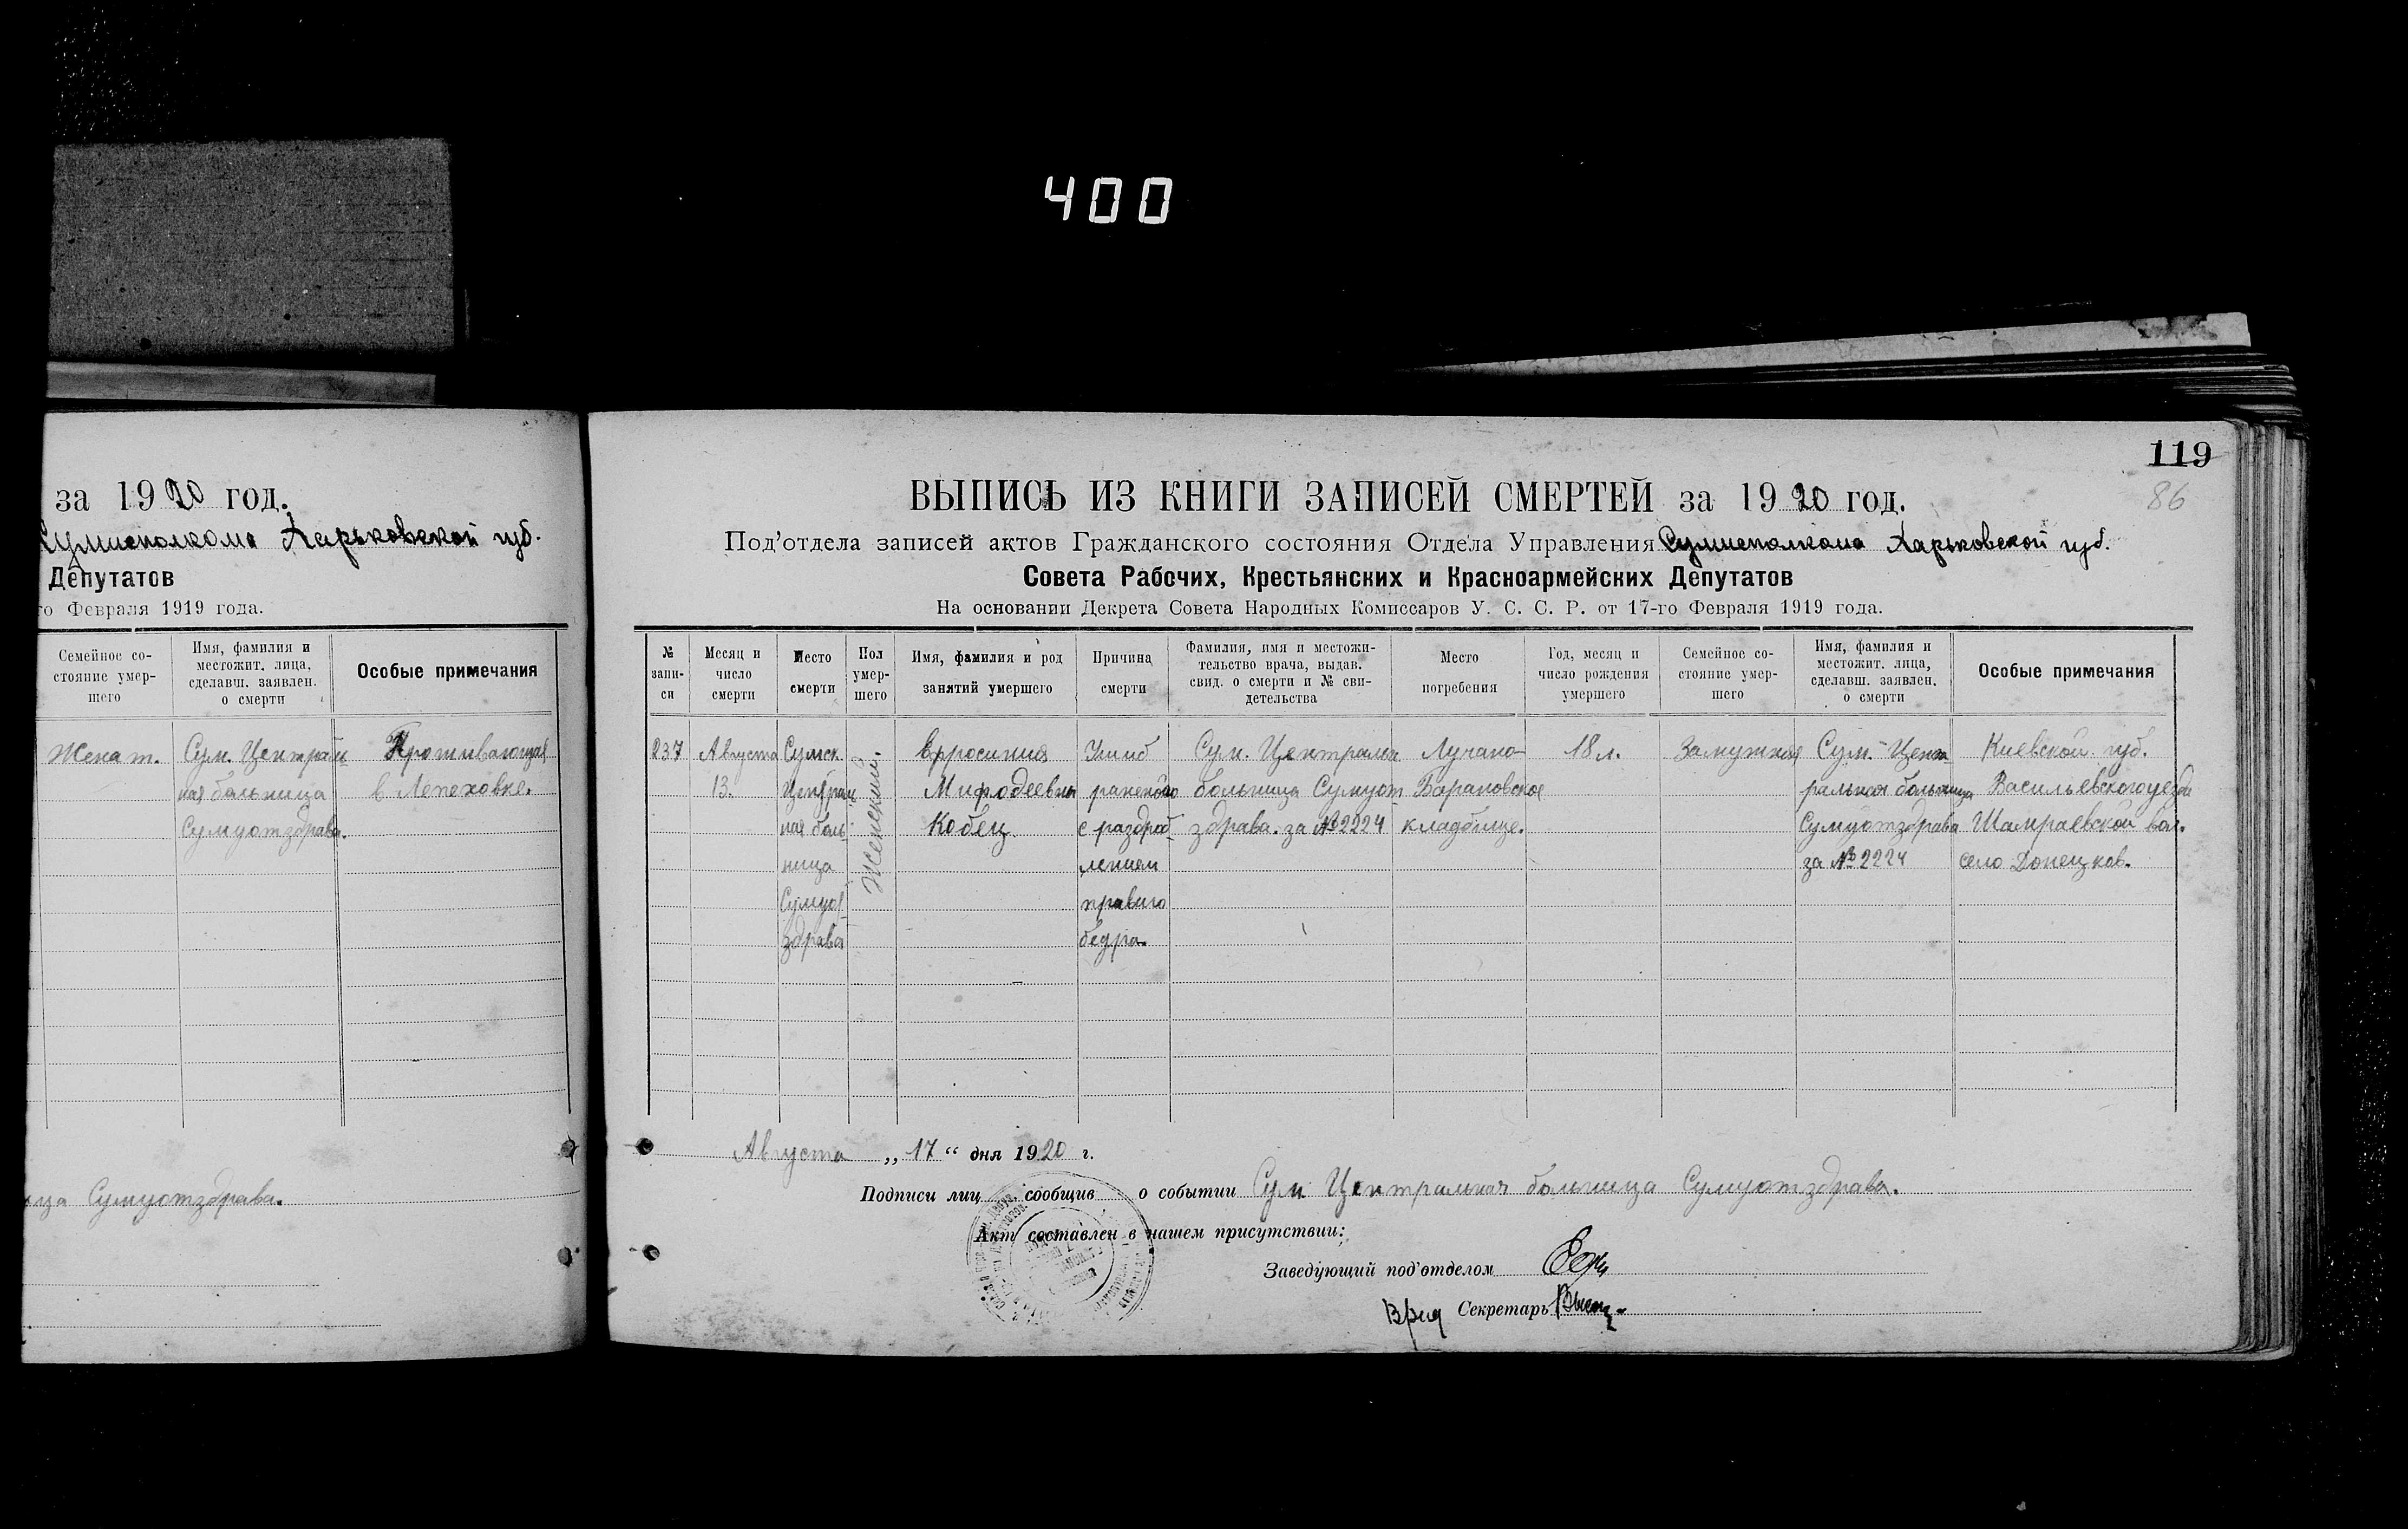 400
за 1920 год.
Сумисполкома Харьковской губ.
Депутатов
го Февраля 1919 года.
Семейное со-
стояние умер-
шего
Имя, фамилия и
местожит. лица,
сделавш. заявлен.
о смерти
Особые примечания
Женат.
Сум. Централь
ная больница
Сумуотздрава.
Проживающая
в Лепеховке.
ица Сумуотздрава.
119
86
ВЫПИСЬ ИЗ КНИГИ ЗАПИСЕЙ СМЕРТЕЙ за 1920 год.
Под'отдела записей актов Гражданского состояния Отдела Управления Сумисполкома Харьковской губ.
Совета Рабочих, Крестьянских и Красноармейских Депутатов
На основании Декрета Совета Народных Комиссаров У. С. С. Р. от 17-го Февраля 1919 года.
№
запи-
си
Месяц и
число
смерти
Место
смерти
Пол
умер-
шего
Имя, фамилия и род
занятий умершего
Причина
смерти
Фамилия, имя и местожи-
тельство врача, выдав.
свид. о смерти и № сви-
детельства
Место
погребения
Год, месяц и
число рождения
умершего
Семейное со-
стояние умер-
шего
Имя, фамилия и
местожит. лица,
сделавш. заявлен.
о смерти
Особые примечания
237
Августа
13.
Сумск.
Централь
ная боль-
ница
Сумуот-
здрава
Женский.
Ефросиния
Мифодеевна
Кобец
Ушиб
с раздроб-
лением
правого
бедра.
Сум. Централь
больница Сумуот
здрава. за №2224
Лучано-
Барановское
кладбище.
18 л.
Замужняя
Сум. Цент
ральная больница
Сумуотздрава
за №2224
Киевской губ.
Васильевского уезда
Шамраевской вол.
село Донецков.
Августа „17“ дня 1920 г.
Подписи лиц сообщив о событии Сум Центральная больница Сумуотздрава.
Акт составлен в нашем присутствии:
Заведующий под'отделом
Врид Секретарь